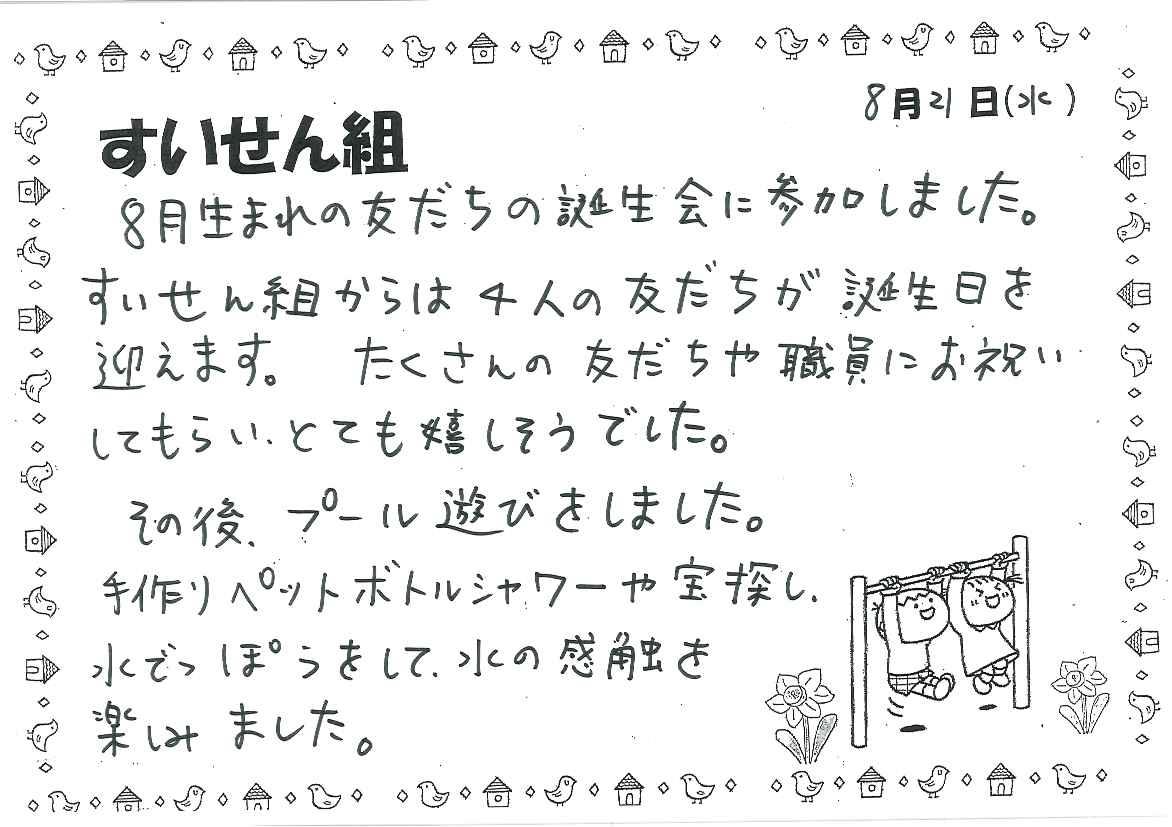 8月21日(水)
すいせん組
8月生まれの友だちの誕生会に参加しました。
すいせん組からは4人の友だちが誕生日を
迎えます。 たくさんの友だちや職員にお祝い
してもらい、とても嬉しそうでした。
その後、プール遊びをしました。
手作りペットボトルシャワーや宝探し、
水でっぽうをして、水の感触を
楽しみました。